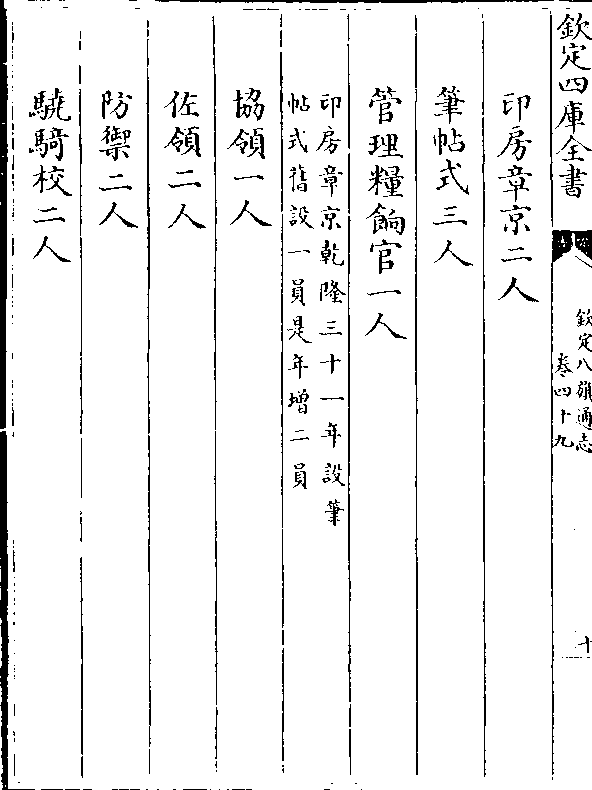 欽定四庫全書
欽定八旗通志
卷四十九
十
印房章京二人
筆帖式三人
管理糧餉官一人
印房章京乾隆三十一年設筆
帖式舊設一員是年增二員
協領一人
佐領二人
防禦二人
驍騎校二人